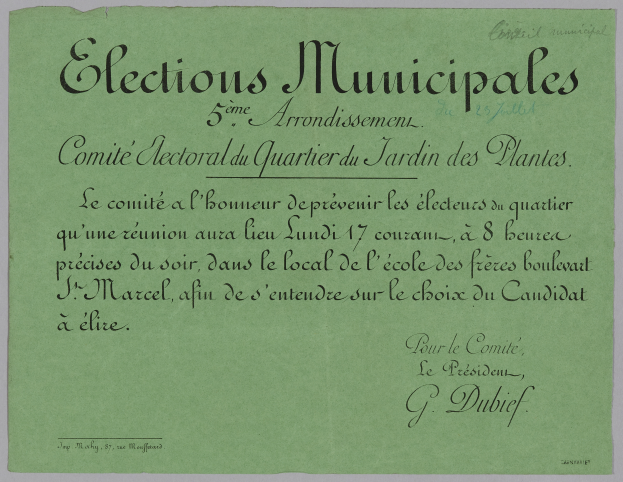 Conseil municipal
Elections Municipales
du 23 Juillet
5ème Arrondissement.
Comité Électoral du Quartier du Jardin des Plantes.
Le comité a l'honneur de prévenir les électeurs du quartier
qu'une réunion aura lieu Lundi 17 courant, à 8 heures
précises du soir, dans le local de l'école des frères boulevart
St. Marcel, afin de s'entendre sur le choix du Candidat
à élire.
Pour le Comité,
Le Président,
G. Dubief.
Imp. Mahy, 87, rue Mouffetard